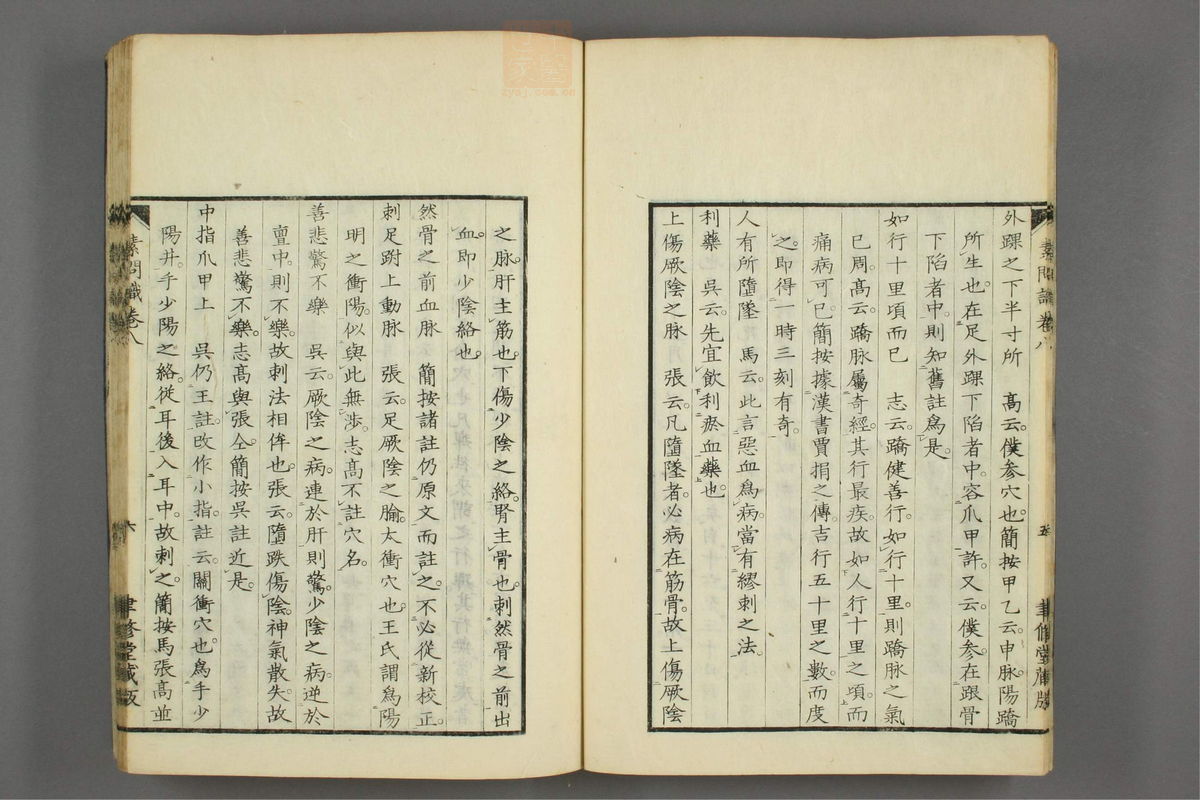 外踝之下半寸所　高云。僕參穴也。簡按甲乙云。申脉。陽蹻
所生也。在足外踝下陷者中。容爪甲許。又云。僕參在跟骨
下陷者中。則知舊註爲是。
如行十里頃而已　志云。蹻健善行。如行十里。則蹻脉之氣
已周。高云。蹻脉屬奇經。其行最疾。故如人行十里之頃。而
痛病可已。簡按據漢書賈捐之傳。吉行五十里之數。而度
之。即得一時三刻有奇。
人有所墮墜　馬云。此言惡血爲病。當有繆刺之法。
利藥　吳云。先宜飮利瘀血藥也。
上傷厥陰之脉　張云。凡墮墜者。必病在筋骨。故上傷厥陰
素問識　卷八　五　聿修堂藏版
之脉。肝主筋也。下傷少陰之絡。腎主骨也。刺然骨之前出
血。即少陰絡也。
然骨之前血脉　簡按諸註仍原文而註之。不必從新校正。
刺足跗上動脉　張云。足厥陰之腧。太衝穴也。王氏謂爲陽
明之衝陽。似與此無涉。志高不註穴名。
善悲驚不樂　吳云。厥陰之病。連於肝則驚。少陰之病。逆於
亶中。則不樂。故刺法相侔也。張云。墮跌傷陰。神氣散失。故
善悲驚不樂。志高與張仝。簡按吳註近是。
中指爪甲上　吳仍王註。改作小指。註云。關衝穴也。爲手少
陽井。手少陽之絡。從耳後入耳中。故刺之。簡按馬張高並
素問識　卷八　六　聿修堂藏版
zysj.com.cn